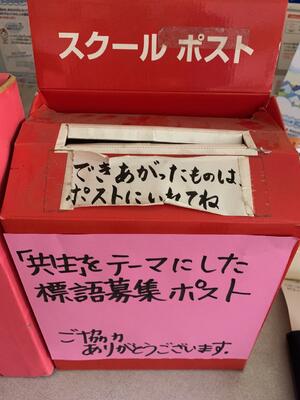 スクール ポスト
できあがったものは、
ポストにいれてね
「共生」をテーマにした
標語募集ポスト
ご協力
ありがとうございます.